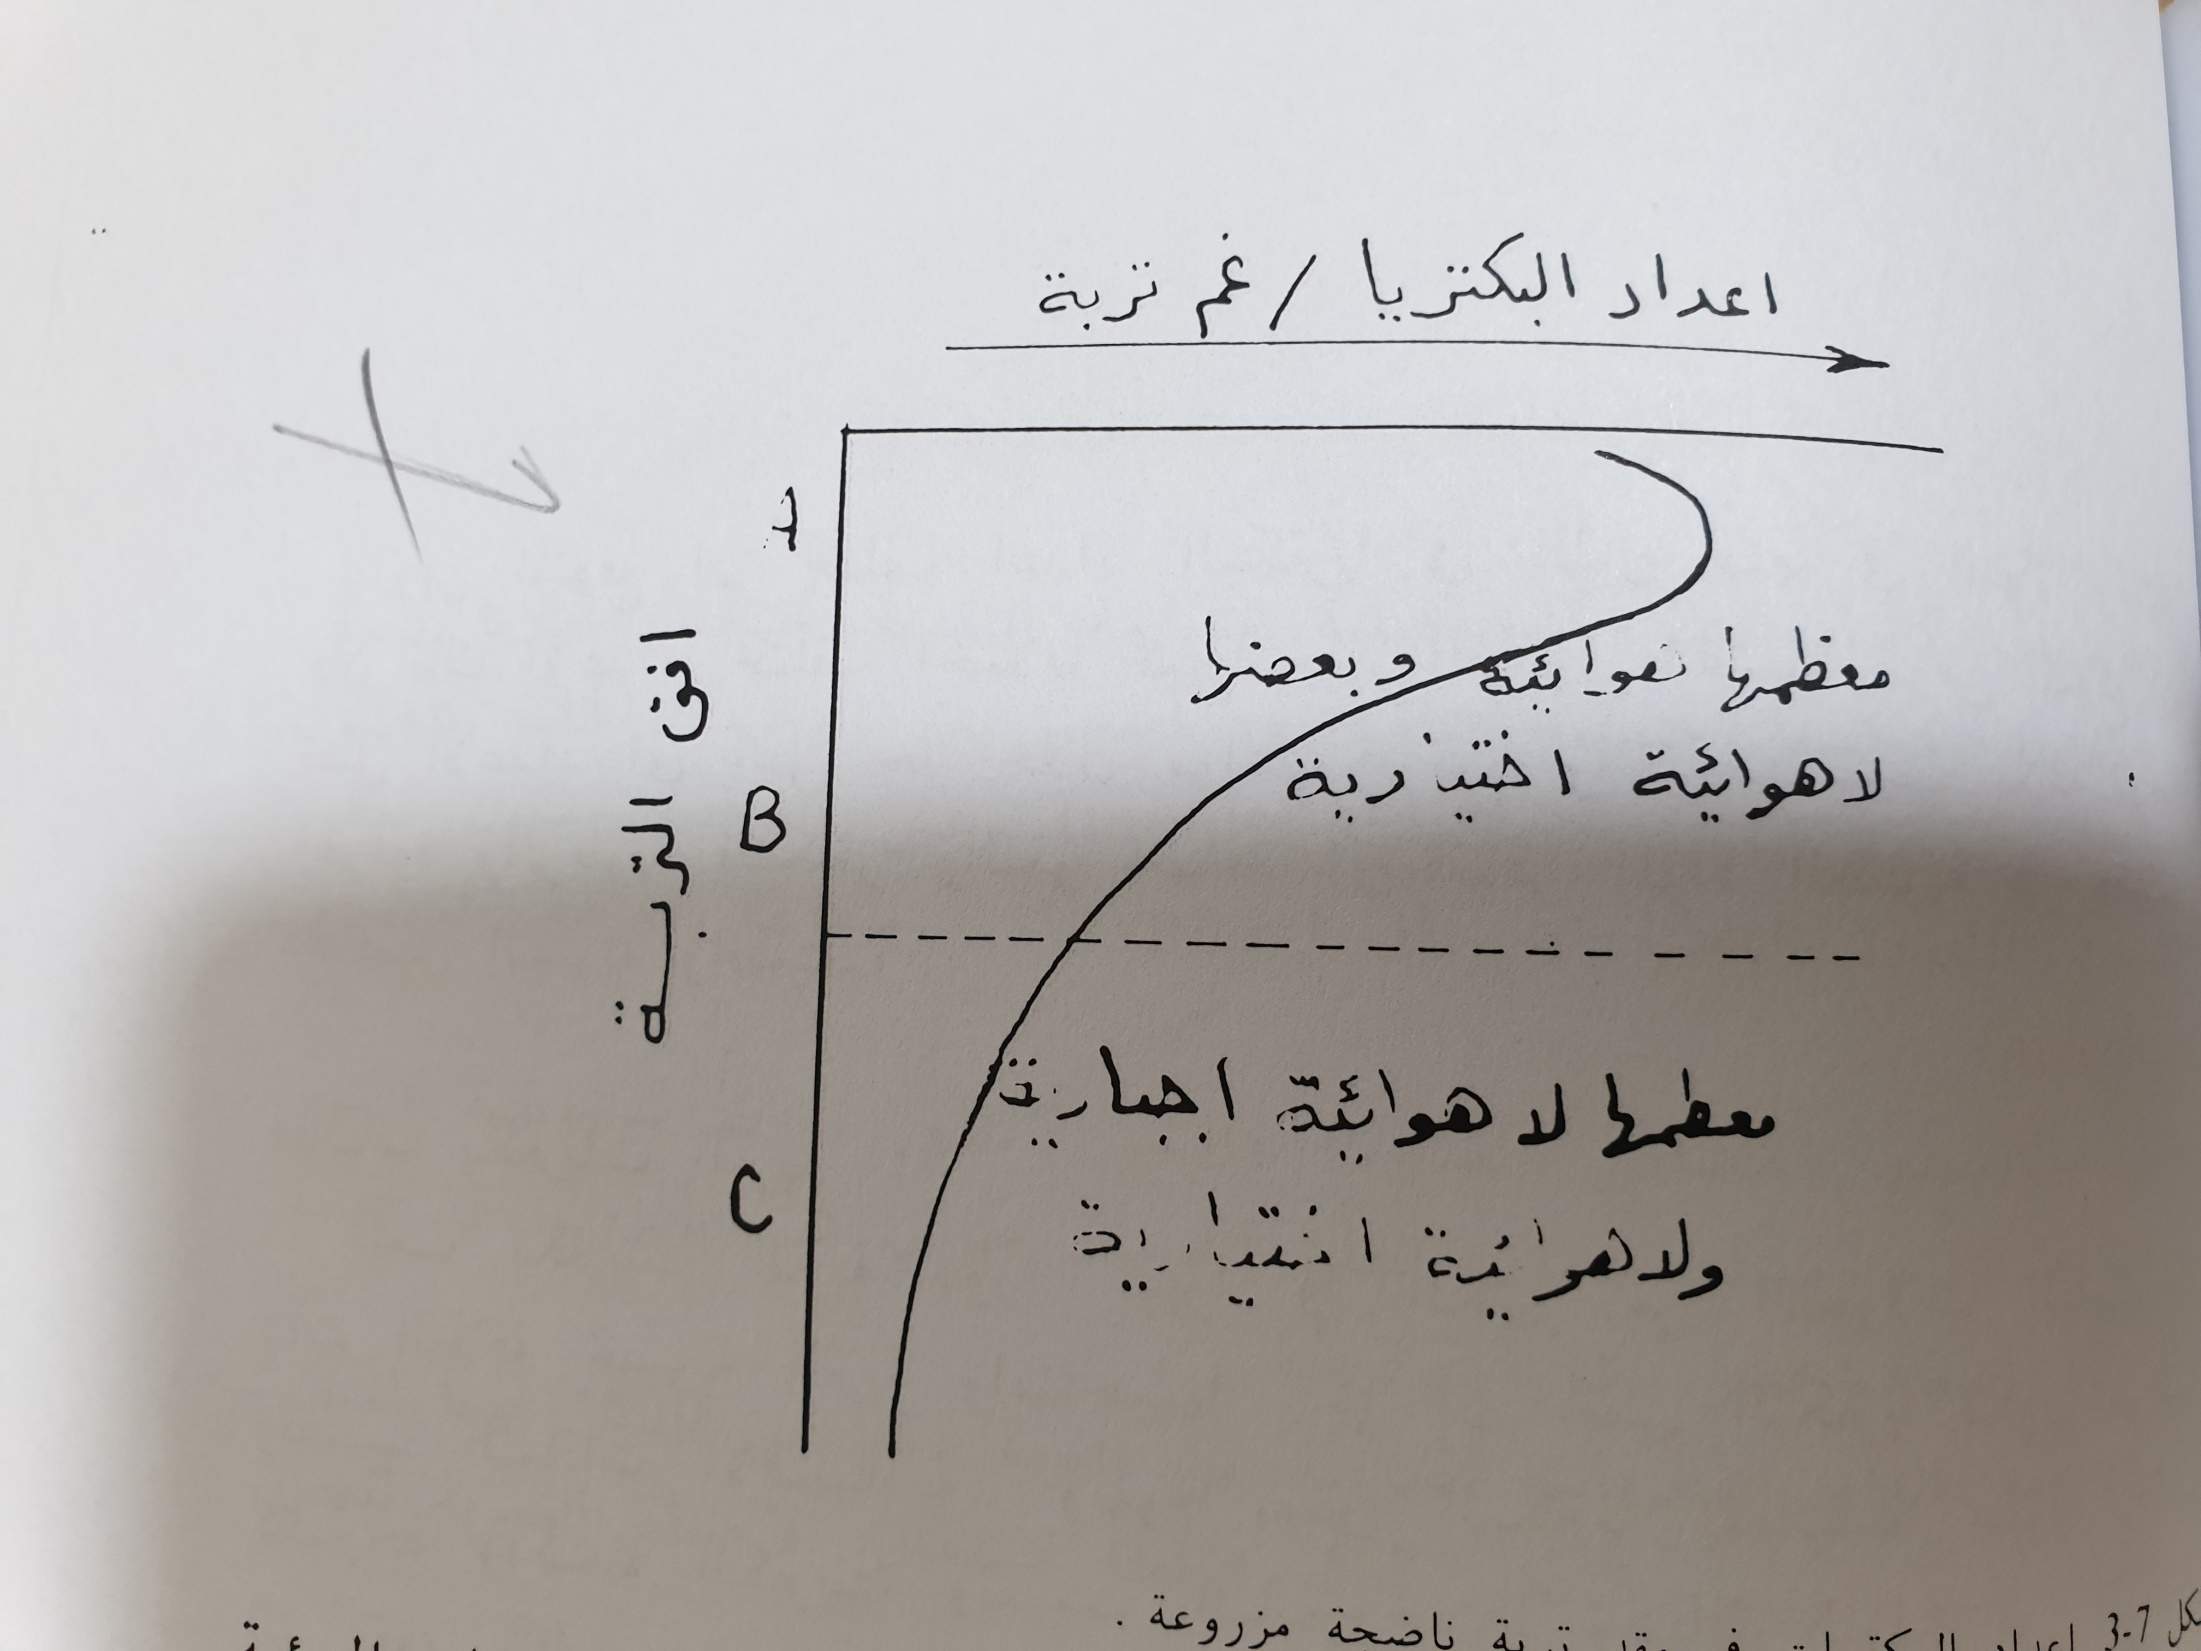 اعداد البكتريا / غم تربة
افق التربـــة
B
C
معظمها هوائية وبعضها
لاهوائية اختيارية
معظمها لاهوائية اجبارية
ولاهوائية اختيارية
شكل 7-3 اعداد البكتريا في مقد تربة ناضجة مزروعة .